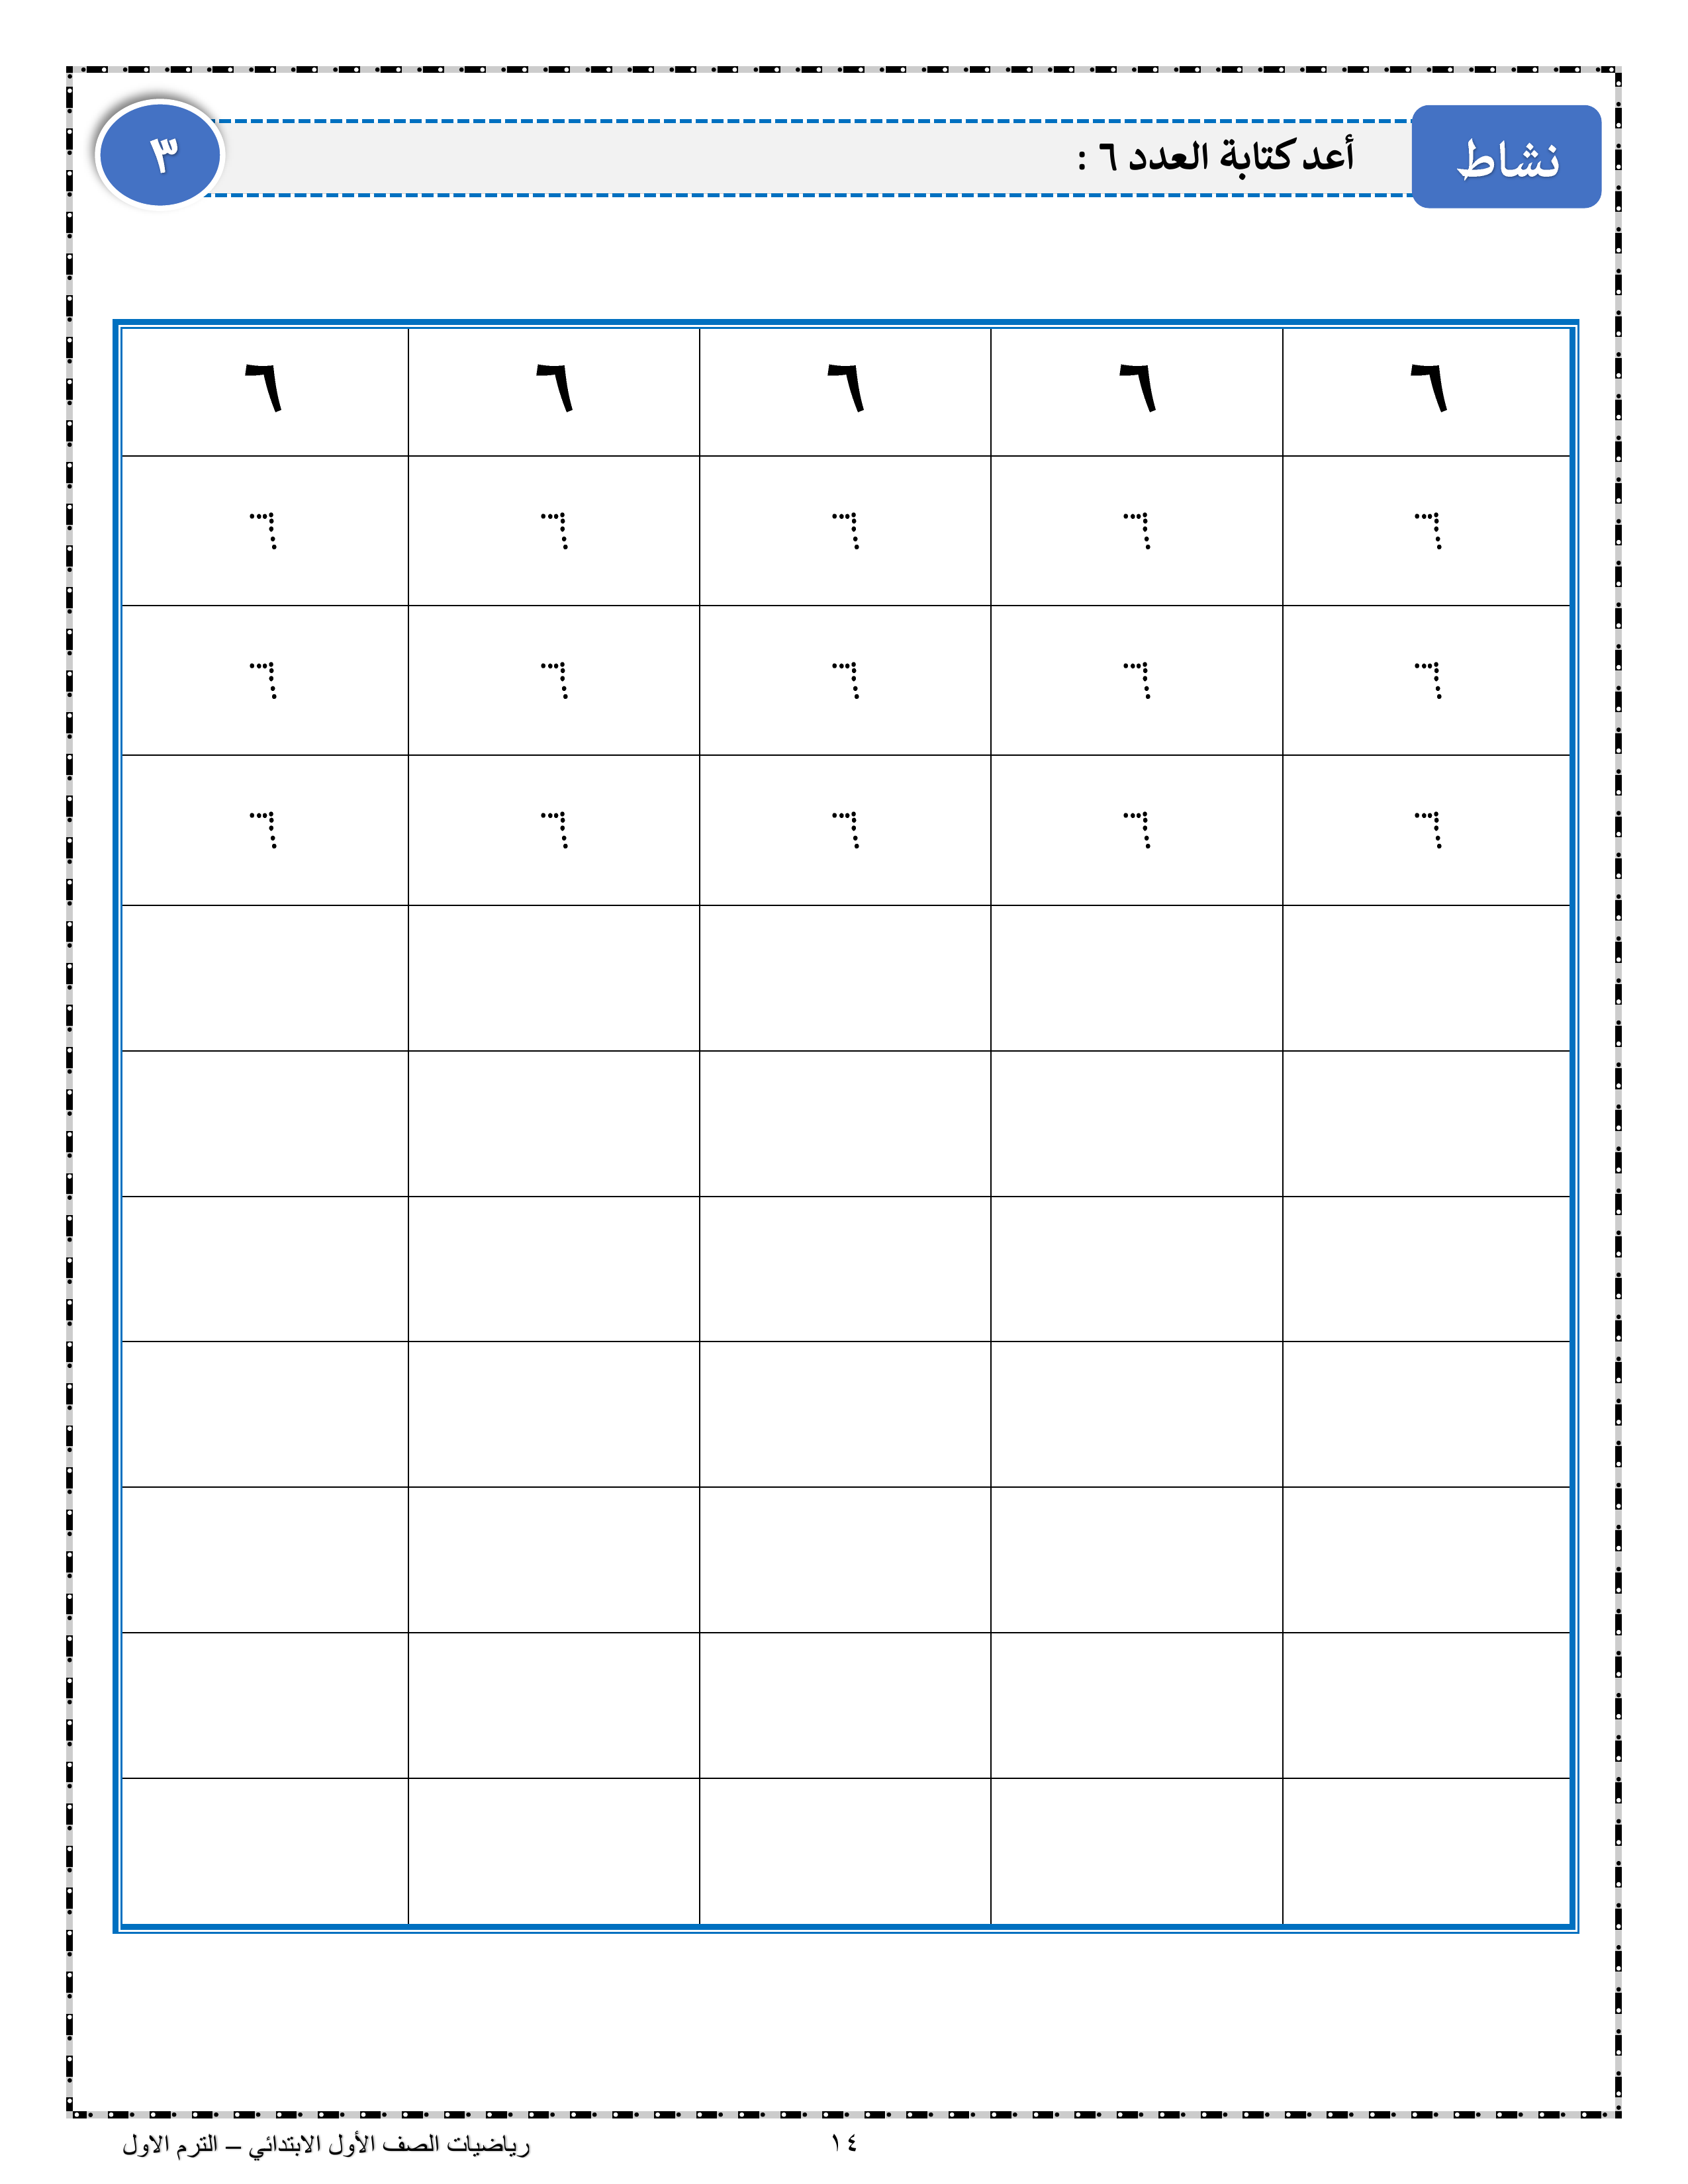 نشاط
أعد كتابة العدد ٦ :
٣
٦ ٦ ٦ ٦ ٦
٦ ٦ ٦ ٦ ٦
٦ ٦ ٦ ٦ ٦
٦ ٦ ٦ ٦ ٦
١٤
رياضيات الصف الأول الابتدائي – الترم الاول